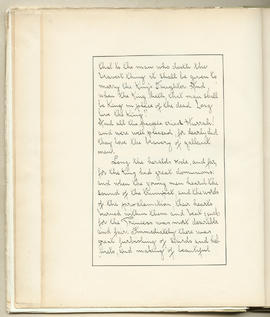 that to the man who doeth the
bravest thing it shall be given to
marry the King's Daughter. And
when the King dieth that man shall
be King in place of the dead. Long
live the King!"
And all the people cried "Hurrah!"
and were well pleased, for dearly did
they love the bravery of gallant
men.
Long the heralds rode, and far,
for the King had great dominions;
and when the young men heard the
sound of the trumpet, and the words
of the proclamation, their hearts
burned within them and beat
for the Princess was most desirable
and fair. Immediately there was
great furbishing of swords and hel-
mets, and making of beautiful